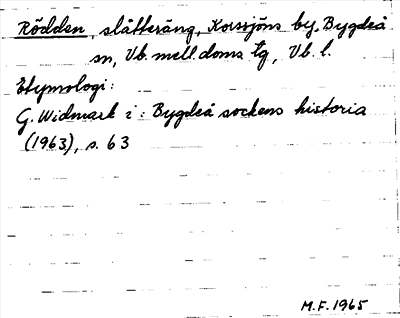 Rödden, slåtteräng, Korssjöns by, Bygdeå
sn, Vb. mell. doms. tg, Vb. l.
Etymologi:
G. Widmark i: Bygdeå sockens historia
(1963), s. 63
M.F. 1965